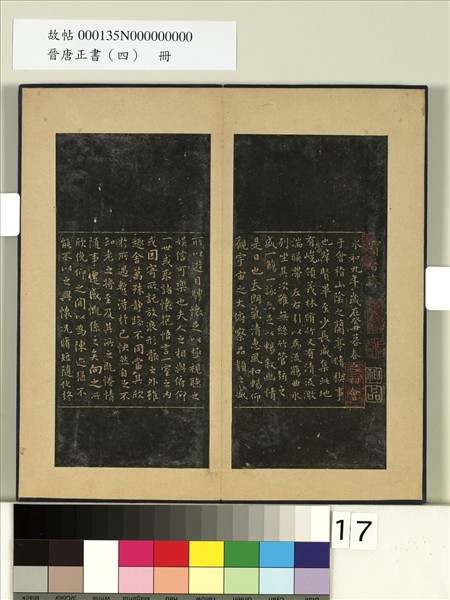 故帖 000135N000000000
晉唐正書（四） 冊
永和九年歲在癸丑暮春之初會
于會稽山陰之蘭亭脩禊事
也羣賢畢至少長咸集此地
有峻領茂林脩竹又有清流激
湍暎帶左右引以為流觴曲水
列坐其次雖無絲竹管弦之
盛一觴一詠亦足以暢敘幽情
是日也天朗氣清惠風和暢仰
觀宇宙之大俯察品類之盛
所以遊目騁懷足以極視聽之
娛信可樂也夫人之相與俯仰
一世或取諸懷抱悟言一室之內
或因寄所託放浪形骸之外雖
趣舍萬殊靜躁不同當其欣
於所遇暫得於己怏然自足不
知老之將至及其所之既惓情
隨事遷感慨係之矣向之所
欣俛仰之間以為陳迹猶不
能不以之興懷況脩短隨化終
17